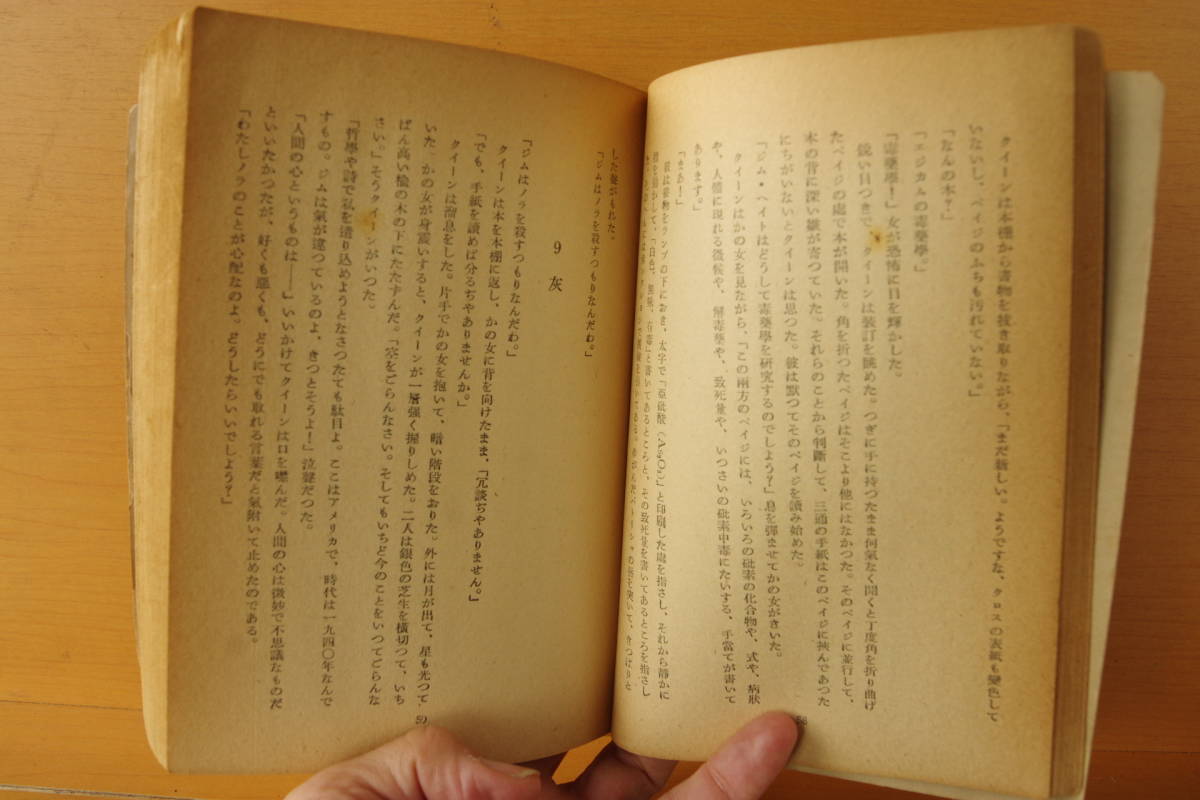 クイーンは本棚から書物を抜き取りながら、「まだ新しい。ようですな、クロスの表紙も變色して
いないし、ペイジのふちも汚れていない。」
「なんの本？」
「エジカムの毒藥學。」
「毒藥學！」女が恐怖に目を輝かした。
鋭い目つきで、クイーンは装訂を眺めた。つぎに手に持つたまま何氣なく開くと丁度角を折り曲げ
たペイジの處で本が開いた。角を折つたペイジはそこより他にはなかつた。そのペイジに並行して、
本の背に深い皺が寄つていた。それらのことから判斷して、三通の手紙はこのペイジに挾んであつた
にちがいないとクイーンは思つた。彼は默つてそのペイジを讀み始めた。
「ジム・ヘイトはどうして毒藥學を研究するのでしよう？」息を彈ませてかの女がきいた。
クイーンはかの女を見ながら、「この兩方のペイジには、いろいろの砒素の化合物や、式や、病狀
や、人體に現れる徴候や、解毒藥や、致死量や、いつさいの砒素中毒にたいする、手當てが書いて
あります。」
「まあ！」
彼は書物をランプの下におき、太字で「亜砒酸（As₂O₃）」と印刷した處を指さし、それから靜かに
指を動かして、「白色、無味、有毒」と書いてあるところと、その致死量を書いてあるところを指さし
58
した聲がもれた。
「ジムはノラを殺すつもりなんだわ。」
9 灰
「ジムはノラを殺すつもりなんだわ。」
クイーンは本を本棚に返し、かの女に背を向けたまま、「冗談ぢやありません。」
「でも、手紙を讀めば分るぢやありませんか。」
クイーンは溜息をした。片手でかの女を抱いて、暗い階段をおりた。外には月が出て、星も光つて
いた かの女が身震いすると、クイーンが一層強く握りしめた。二人は銀色の芝生を橫切つて、いち
ばん高い楡の木の下にたたずんだ。「空をごらんなさい。そしてもいちど今のことをいつてごらんな
さい。」そうクイーンがいつた。
「哲學や詩で私を遣り込めようとなさつたても駄目よ。ここはアメリカで、時代は一九四〇年なんで
すもの。ジムは氣が違つているのよ、きつとそうよ！」泣聲だつた。
「人間の心というものは――」いいかけてクイーンは口を噤んだ。人間の心は微妙で不思議なものだ
といいたかつたが、好くも惡くも、どうにでも取れる言葉だと氣附いて止めたのである。
「わたしノラのことが心配なのよ。どうしたらいいでしよう？」
59